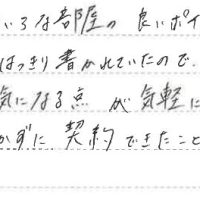 いろな部屋の 良いポイ
はっきり書かれていたので、
気になる点 が 気軽に
かずに 契約できたこと